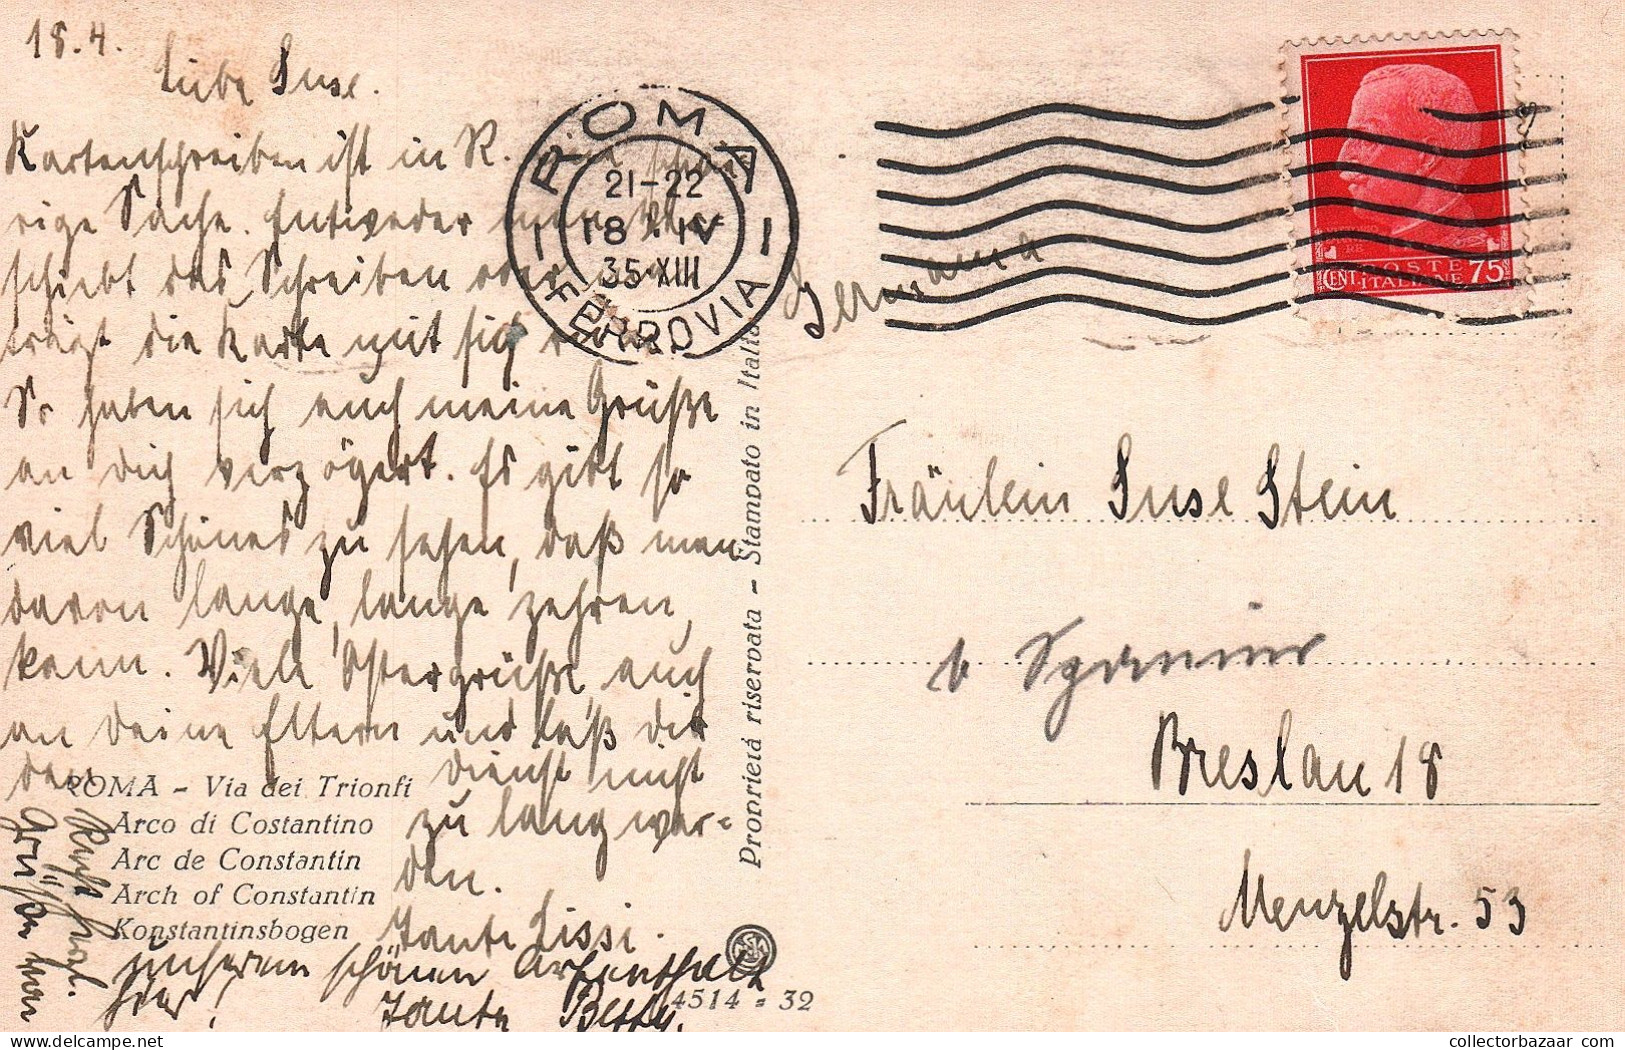 18.4.
Liebe Suse.
Kartenschreiben ist in R. schwie-
rige Sache. Entweder man ver-
schiebt das Schreiben oder man
trägt die Karte mit sich
So haben sich auch meine Grüße
an dich verzögert. Es gibt so
viel Schönes zu sehen, daß man
davon lange, lange zehren
kann. Viele Ostergrüße, auch
an Deine Eltern und laß dir
den Dienst nicht
zu lang wer-
den.
Tante Lissi.
Grüße von
unserem schönen Aufenthalt
hier!
Tante Betty.
ROMA - Via dei Trionfi
Arco di Costantino
Arc de Constantin
Arch of Constantin
Konstantinsbogen
4514 - 32
Proprietá riservata - Stampato in Italia
ROMA
21-22
18 · IV
35·XIII
FERROVIA
Germania
POSTE
ITALIANE
CENT. 75
Fräulein Suse Stein
b
Breslau 18
Menzelstr. 53
collectorbazaar.com